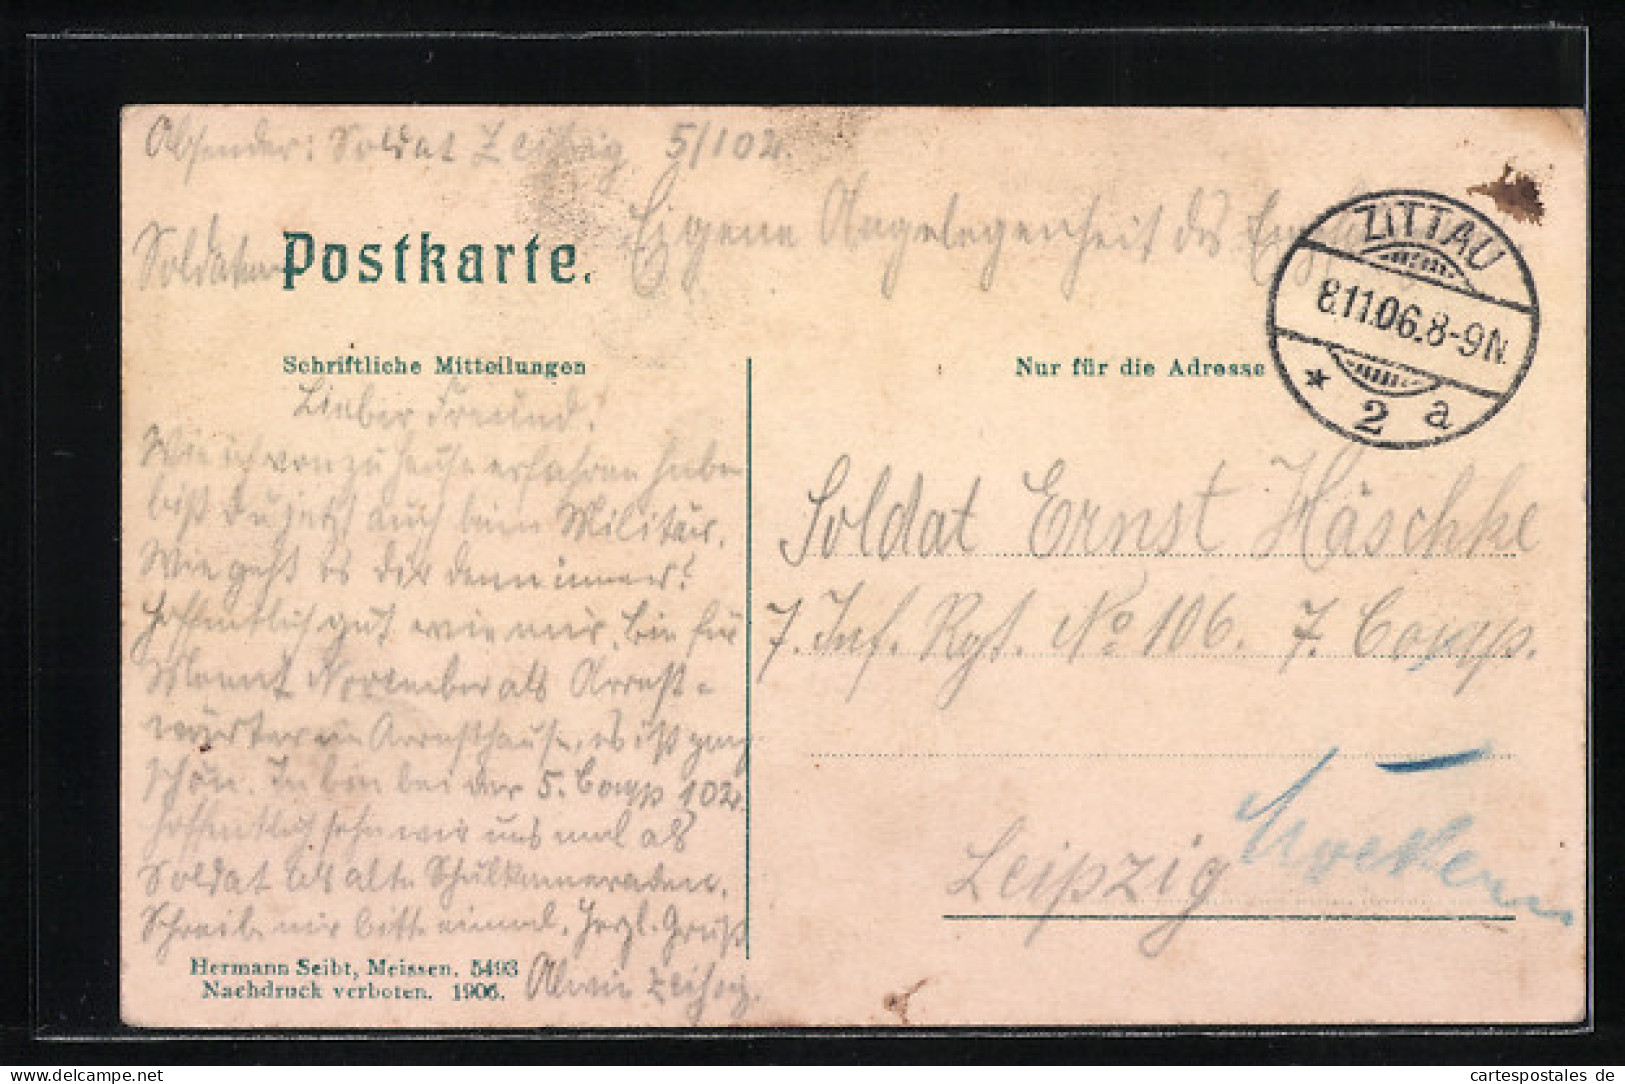 Absender: Soldat Zeißig 5/102.
Soldaten Postkarte. Eigene Angelegenheit des Empf
ZITTAU
8.11.06.8-9N.
* 2 a
Schriftliche Mitteilungen
Nur für die Adresse
Lieber Freund!
Wie ich von zu Hause erfahren habe
bist Du jetzt auch beim Militär.
Wie geht es Dir denn immer?
Hoffentlich gut wie mir. Bin für
Monat November als Arrest-
wärter im Arresthause, es ist ganz
schön. Ich bin bei der 5. Comp 102.
Hoffentlich sehn wir uns mal als
Soldat als alte Schulkameraden.
Schreib mir bitte einmal. Herzl. Gruß
Alwin Zeißig.
Soldat Ernst Häschke
7. Inf. Rgt. No 106. 7. Comp.
Leipzig Möckern
Hermann Seibt, Meissen. 5493
Nachdruck verboten. 1906.
cartespostales de